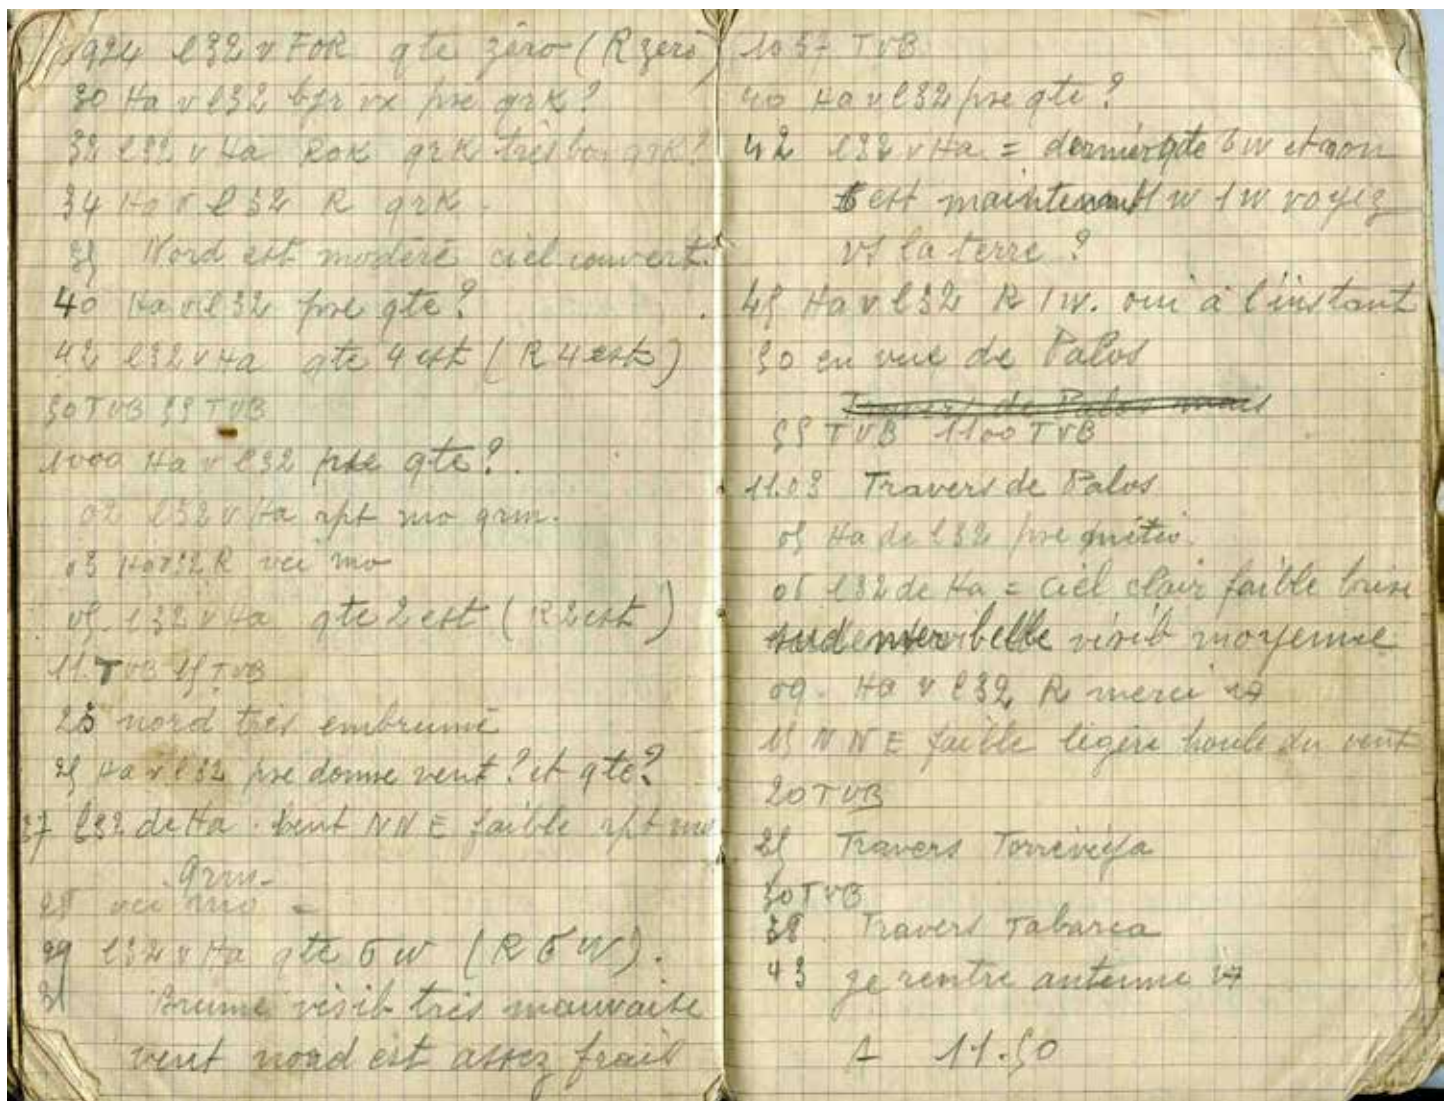 0924 l32 v FOR qte zéro (R zéro)
30 Ha v l32 bjr vx pse qrk?
32 l32 v Ha ROK qrk très bon qrk?
34 Ha v l32 R qrk.
35 Nord est modéré ciel couvert.
40 Ha v l32 pse qte?
42 l32 v Ha qte 4 est (R 4 est)
50 TVB 55 TVB
1000 Ha v l32 pse qte?
02 l32 v Ha rpt mo qrm.
03 Ha v l32 R vci mo
05. l32 v Ha qte 2 est (R 2 est)
11. TVB 15 TVB
25 nord très embrumé
25 Ha v l32 pse donne vent? et qte?
27 l32 de Ha. vent NNE faible rpt mo
qrm-
28 vci mo =
29 l32 v Ha qte 6 w (R 6 W).
31 Brume visib très mauvaise
vent nord est assez frais
1037 TVB
40 Ha v l32 pse qte?
42 l32 v Ha = dernier qte 6 w et non
6 est maintenant 1 w 1 w voyez
vs la terre?
45 Ha v l32 R 1 w. oui à l'instant
50 en vue de Palos
Travers de Palos mais
55 TVB 1100 TVB
11.03 Travers de Palos
05 Ha de l32 pse météo
06 l32 de Ha = ciel clair faible brise
sud est mer belle visib moyenne
09. Ha v l32 R merci
15 NNE faible légère houle du vent
20 TVB
25 Travers Torrevieja
30 TVB
38 Travers Tabarca
43 je rentre antenne
A 11.50